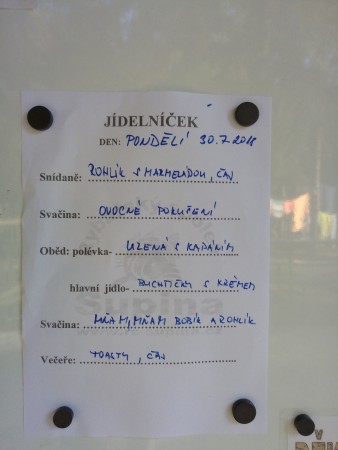 JÍDELNÍČEK
DEN: PONDĚLÍ 30.7.2018
Snídaně: ROHLÍK S MARMELÁDOU, ČAJ
Svačina: OVOCNÉ POKUŠENÍ
Oběd: polévka- UZENÁ S KAPÁNÍM
hlavní jídlo- BUCHTIČKY S KRÉMEM
Svačina: MŇAM, MŇAM BOBÍK A ROHLÍK
Večeře: TOASTY, ČAJ